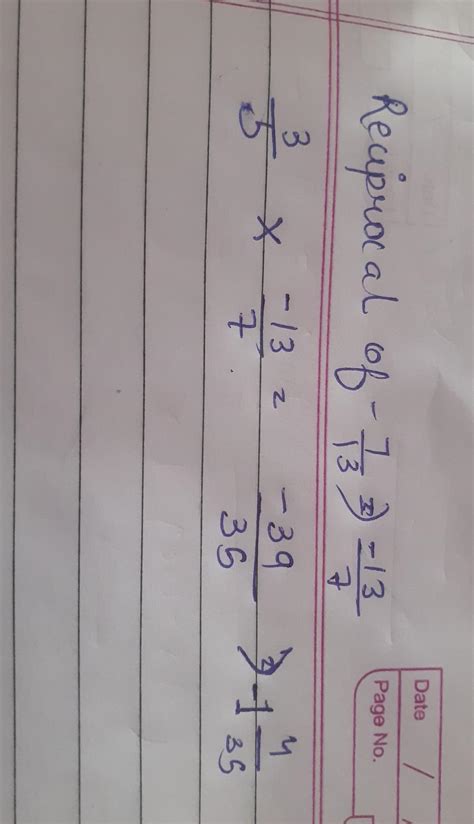 Date /
Page No.
Reciprocal of -7/13 ⇒ -13/7
3/5 × -13/7 = -39/35 ⇒ -1 4/35